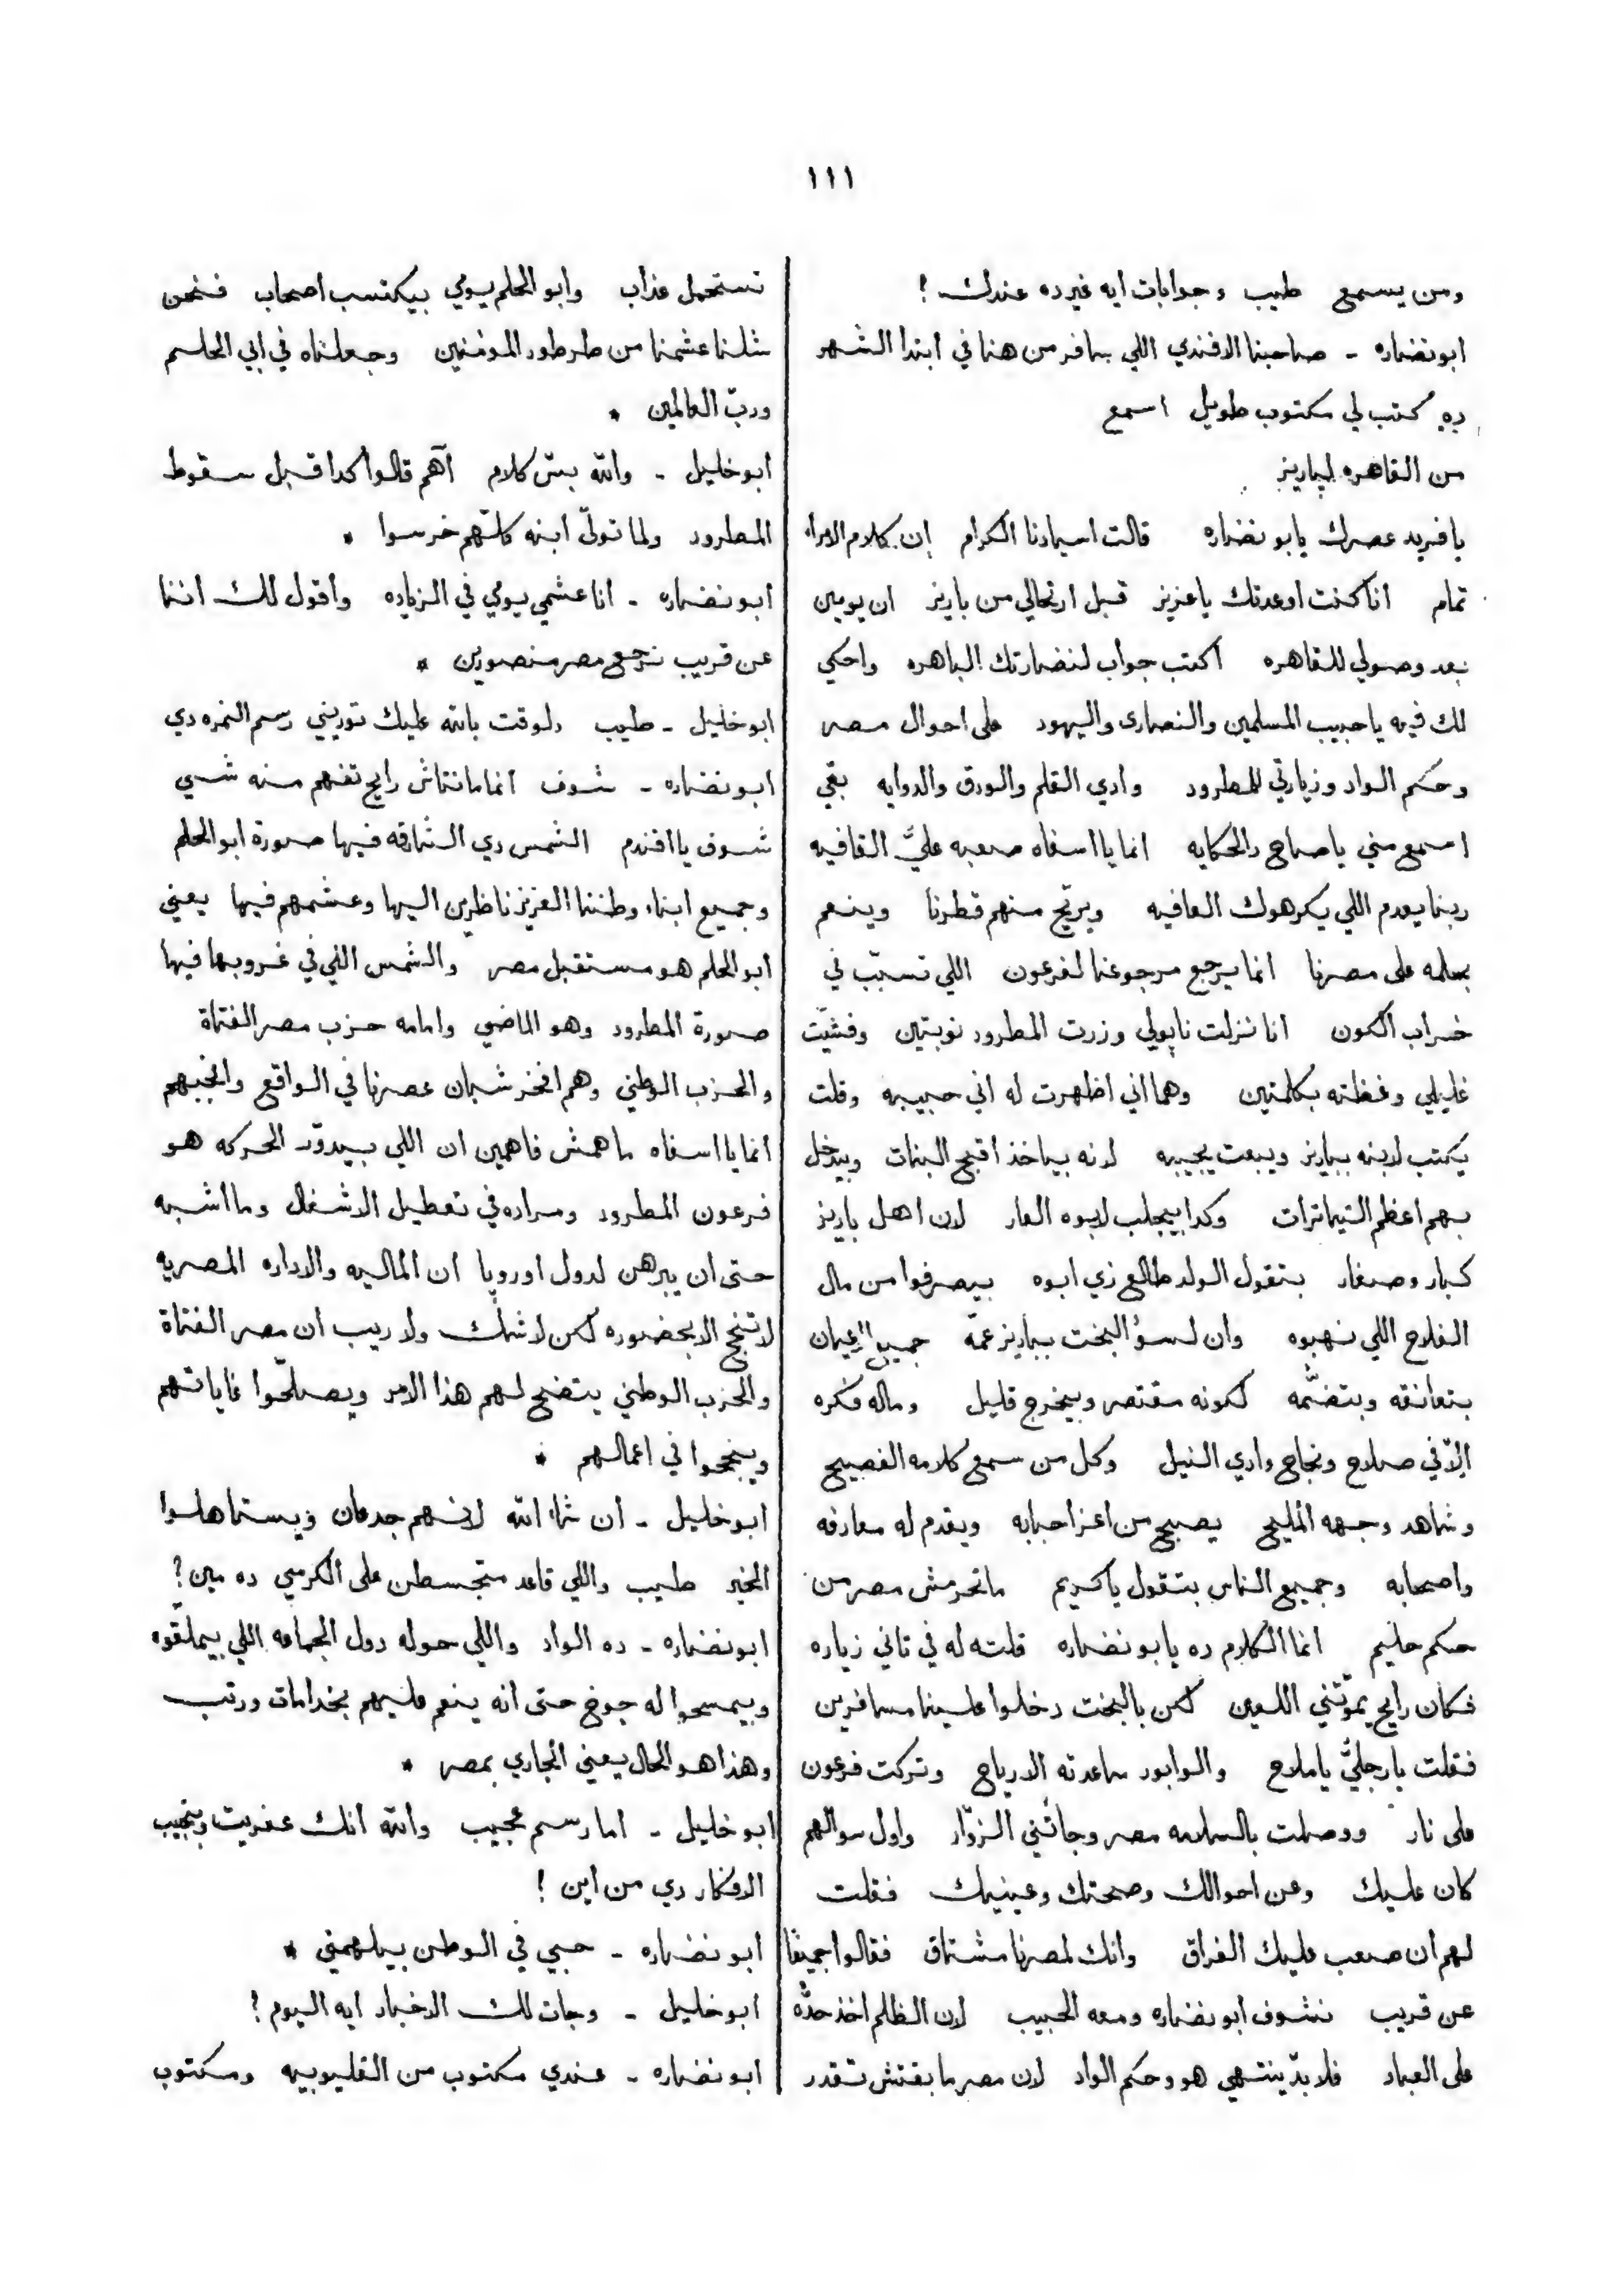 ١١١
ومن يسمع طيب وجوابات ايه غير ده عندك !
ابونضاره - صاحبنا الافندي اللي سافر من هنا في ابتدا الشهر
ده كتب لي مكتوب طويل اسمع
من القاهره لپاريز
يا فريد عصرك يابو نضاره قالت اسيادنا الكرام إن كلام الامراء
تمام انا كنت اوعدتك ياعزيز قبل ارتحالي من باريز ان يومين
بعد وصولي للقاهره اكتب جواب لنضارتك الباهره واحكي
لك فيه يا حبيب المسلمين والنصارى واليهود على احوال مصر
وحكم الواد وزيارتي للمطرود وادي القلم والورق والدوايه بقي
اسمع مني ياصاح دالحكايه انما يا اسفاه صعبه عليَّ القافيه
ربنا يعدم اللي يكرهوك العافيه ويريّح منهم قطرنا وينعم
بحلمه على مصرنا انما يرجع مرجوعنا لفرعون اللي تسبّب في
خراب الكون انا نزلت ناپولي وزرت المطرود نوبتين وفشّيت
غليلي وغظته بكلمتين وهما اني اظهرت له اني حبيبه وقلت
يكتب لابنه بباريز ويبعت يجيبه لانه بياخذ اقبح البنات وبيدخل
بهم اعظم التياترات وكدا بيجلب لابوه العار لان اهل باريز
كبار وصغار بتقول الولد طالع زي ابوه بيصرفوا من مال
الفلاح اللي نهبوه وان لسؤ البخت بباريز عمّه جميع الاعيان
بتعانقه وبتضمّه لكونه مقتصر وبيخرج قليل وماله فكره
الّا في صلاح ونجاح وادي النيل وكل من سمع كلامه الفصيح
وشاهد وجهه المليح يصبح من اعز احبابه ويقدم له معارفه
واصحابه وجميع الناس بتقول ياكريم ماتحرمش مصر من
حكم حليم انما الكلام ده يابو نضاره قلته له في تاني زياره
فكان رايح يموّتني اللعين لكن بالبخت دخلوا علينا مسافرين
فقلت يا رجليَّ ياملاح والوابور ساعدته الارياح وتركت فرعون
على نار ووصلت بالسلامه مصر وجاتني الزوّار واول سوالهم
كان عليك وعن احوالك وصحتك وعينيك فقلت
لهم ان صعب عليك الفراق وانك لمصرنا مشتاق فقالوا جميعًا
عن قريب نشوف ابو نضاره ومعه الحبيب لان الظلم اخذ حدّه
على العباد فلابدّ ينتهي هو وحكم الواد لان مصر ما بقتش تقدر
تستحمل عذاب وابو الحلم يومي بيكتسب اصحاب فنحن
شلنا عشمنا من طرطور الموفنين وجعلناه في ابي الحلم
وربّ العالمين *
ابوخليل - والله بسّ كلام آهم قالوا كدا قبل سقوط
المطرود ولما تولّى ابنه كلّهم خرسوا *
ابونضاره - انا عشمي يومي في الزياده واقول لك اننا
عن قريب نرجع مصر منصورين *
ابوخليل - طيب دلوقت بالله عليك توريني رسم النمره دي
ابونضاره - شوف انما مانتاش رايح تفهم منه شي
شوف يا افندم الشمس دي الشارقه فيها صورة ابو الحلم
وجميع ابناء وطننا العزيز ناظرين اليها وعشمهم فيها يعني
ابو الحلم هو مستقبل مصر والشمس اللي في غروبها فيها
صورة المطرود وهو الماضي وامامه حزب مصر الفتاة
والحزب الوطني وهم افخر شبان عصرنا في الواقع وانجبهم
انما يا اسفاه ماهمش فاهمين ان اللي بيدوّر الحركه هو
فرعون المطرود ومراده في تعطيل الاشغال وما اشبه
حتى ان يبرهن لدول اوروپا ان الماليه والاداره المصريه
لا تنجح الا بحضوره لكن لا شك ولا ريب ان مصر الفتاة
والحزب الوطني يتضح لهم هذا الامر ويصلحّوا غاياتهم
وينجحوا في اعمالهم *
ابوخليل - ان شاء الله لانهم جدعان ويستاهلوا
الخير طيب واللي قاعد متجسطن على الكرسي ده مين ؟
ابونضاره - ده الواد واللي حوله دول الجماعه اللي بيملّقوه
وبيمسحوا له جوخ حتى انه ينعم عليهم بخدامات ورتب
وهذا هو الحال يعني الجاري بمصر *
ابوخليل - اما رسم عجيب والله انك عفريت وبتجيب
الافكار دي من اين !
ابونضاره - حبي في الوطن بيلهمني *
ابوخليل - وجات لك الاخبار ايه اليوم ؟
ابونضاره - عندي مكتوب من القليوبيه ومكتوب